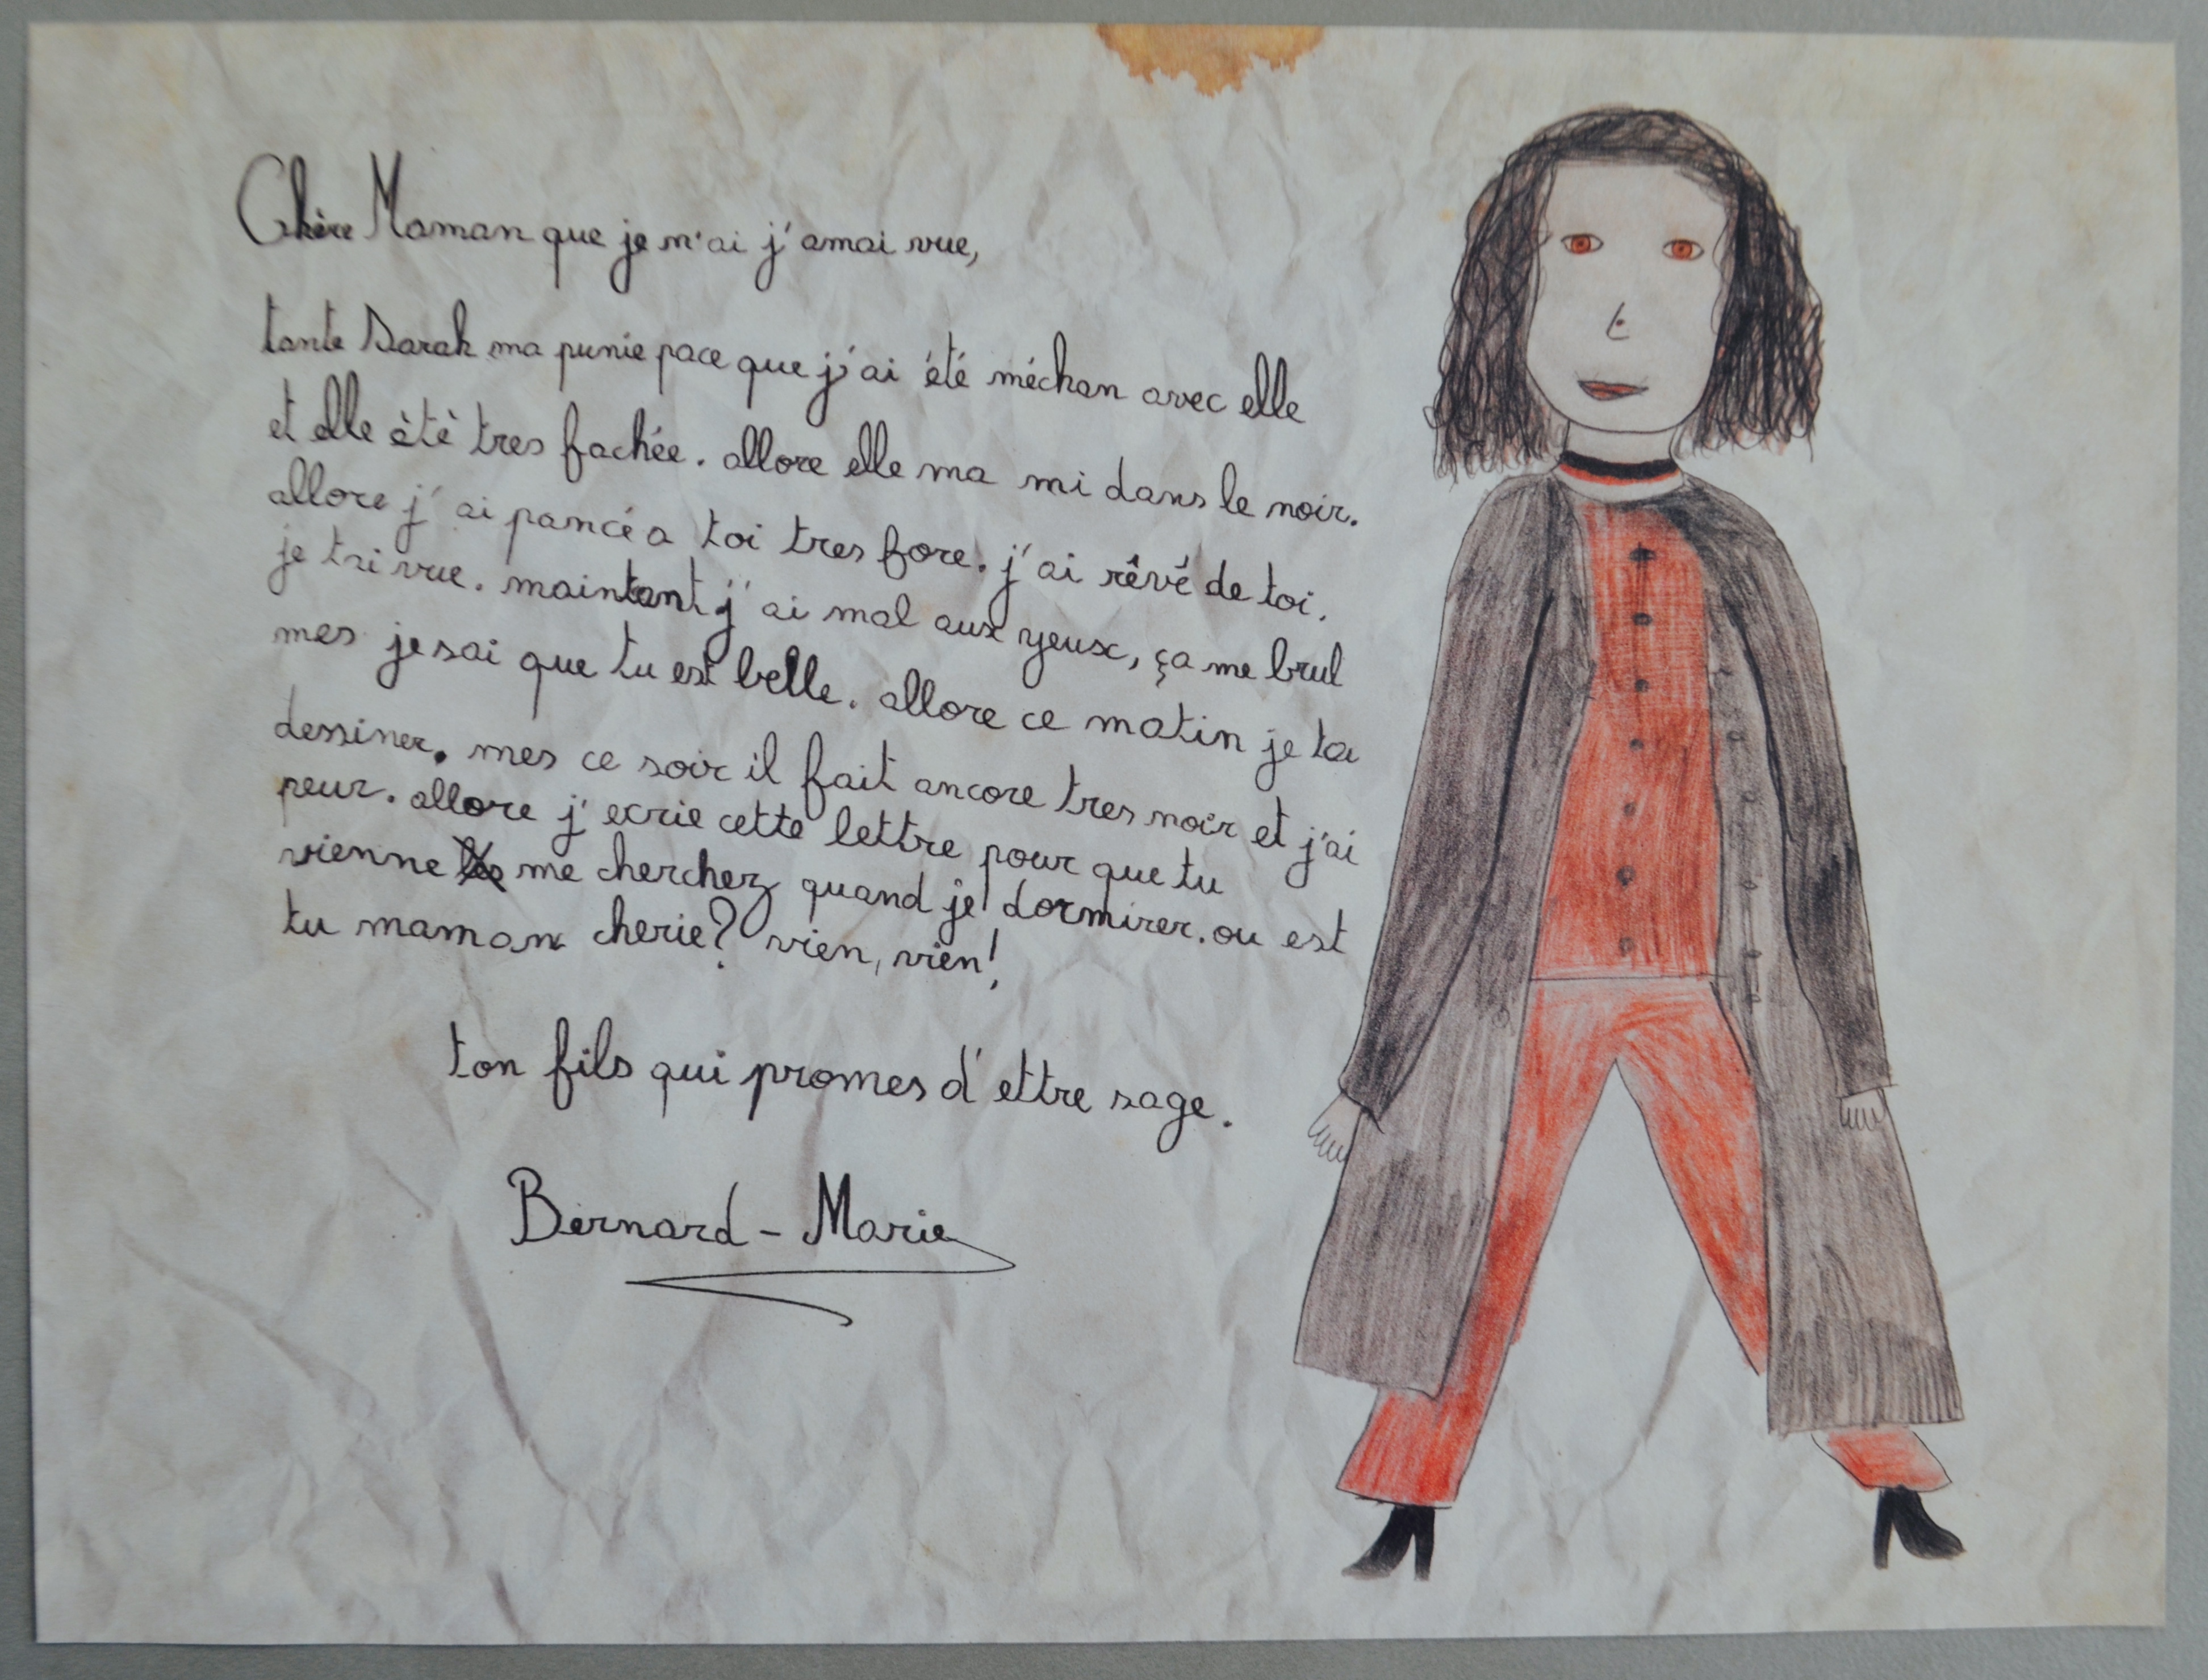 Chère Maman que je n'ai j'amai vue,
tante Sarah ma punie pace que j'ai été méchan avec elle
et elle ètè tres fachée. allore elle ma mi dans le noir.
allore j'ai pancé a toi tres fore. j'ai rêvé de toi.
je tai vue. maintant j'ai mal aux yeux, ça me brul
mes je sai que tu est belle. allore ce matin je ta
dessiner. mes ce soir il fait ancore tres noir et j'ai
peur. allore j'ecrie cette lettre pour que tu
vienne me cherchez quand je dormirer. ou est
tu maman cherie? vien, vien!
ton fils qui promes d'ettre sage.
Bernard - Marie